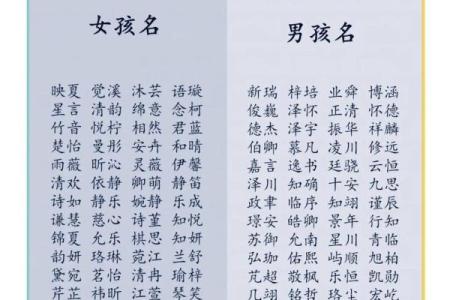 女孩名
映夏 觉溪 沐芸 语璇
星言 清韵 绵意 念柯
竹音 悦柠 相然 君蓝
楚怡 曼彤 安卉 和晴
雨薇 昕沁 灵薇 伊馨
清欢 依静 卿萌 静笛
诗如 静乐 婉静 乐成
谦慧 慈心 诗堇 知悦
锦夏 允乐 棋思 知妍
韵妍 珞琳 菀江 兰舒
黛宛 茗怡 清冉 瑜梓
芹芷 祎昕 江萱 琴笑
男孩名
新瑞 梓培 业舜 博涵
俊巍 泽怀 正清 怀德
德杰 泽宇 振华 祥麟
伯卿 慕凡 凌川 修远
嘉言 逸书 廷骁 云恒
泽川 知确 十安 九思
政聿 临序 知翊 谨辰
璟安 皓卿 景年 行知
苏御 允南 星川 青临
弘珈 佑熙 屿顺 柏
芃超 敬枫 乐恒 凯勋
几翊 铭哲 珞尘 屹